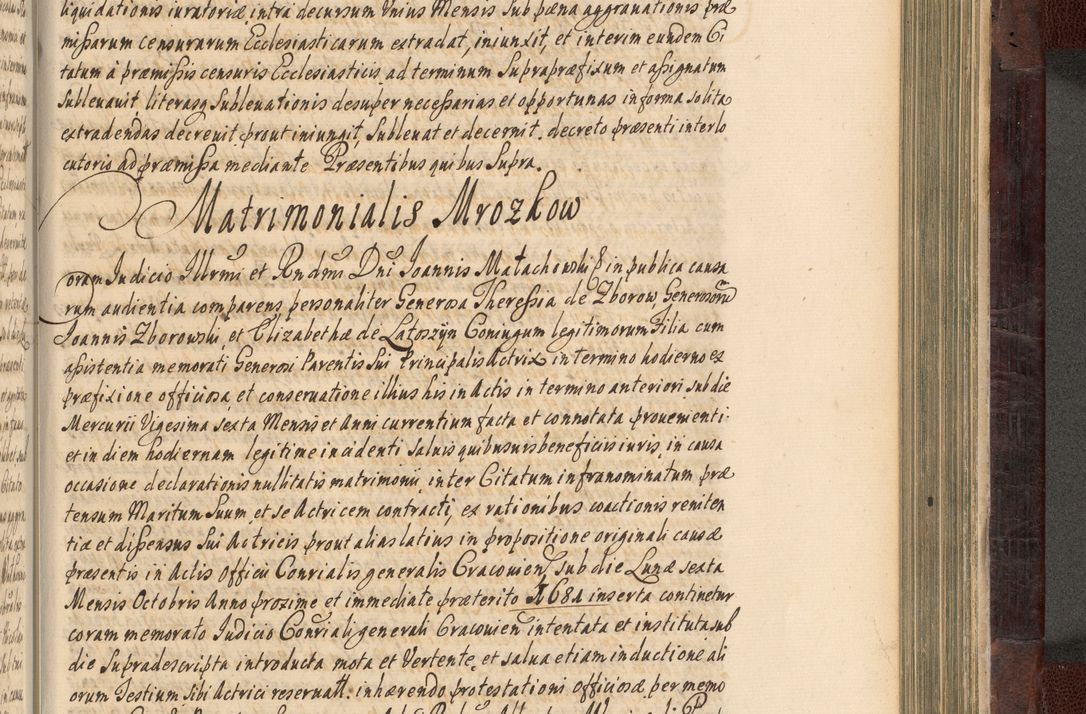 liquidationis iuratoriæ intra decursum Unius Mensis Sub pœna aggravationis præ
mißarum Censurarum Ecclesiasticarum extradat, iniunxit, et interim eundem Ci
tatum à præmißis censuris Ecclesiasticis ad terminum Supra præfixum et aßignatum
Sublevavit literasq Sublevationis desuper neceßarias et opportunas in forma solita
extradendas decrevit prout iniungit, Sublevat et decernit, decreto præsenti interlo
cutorio ad præmißa mediante Præsentibus quibus Supra.
Matrimonialis Mrozkow
Coram Judicio Illrmi et Rndmi Dni Joannis Małachowski in publica causa
rum audientia comparens personaliter Generosa Thereßia de Zborow Generosorū
Joannis Zborowski, et Elizabethæ de Latoszyn Coniugum legitimorum Filia cum
aßistentia memorati Generosi Parentis Sui Principalis Actrix in termino hodierno ex
præfixione officiosa, et conservatione illius his in Actis in termino anteriori sub die
Mercurii Vigesima sexta Mensis et Anni currentium facta et connotata provenienti
et in diem hodiernam legitime incidenti salvis quibusvis beneficiis iuris, in causa
occasione declarationis nullitatis matrimonii, inter Citatum infranominatum præ
tensum Maritum Suum, et se Actricem contracti, ex rationibus coactionis reniten
tiæ et dißensus Sui Actricis prout alias latius in propositione originali causæ
præsentis in Actis Officii Conrialis generalis Cracovien sub die Lunæ sexta
Mensis Octobris Anno proxime et immediate præterito 1681 inserta continetur
coram memorato Judicio Conriali generali Cracovien intentata et instituta sub
die Supradescripta introducta mota et Vertente, et salva etiam inductione ali
orum Testium Sibi Actrici reservatt. inhærendo protestationi officiosæ per memo